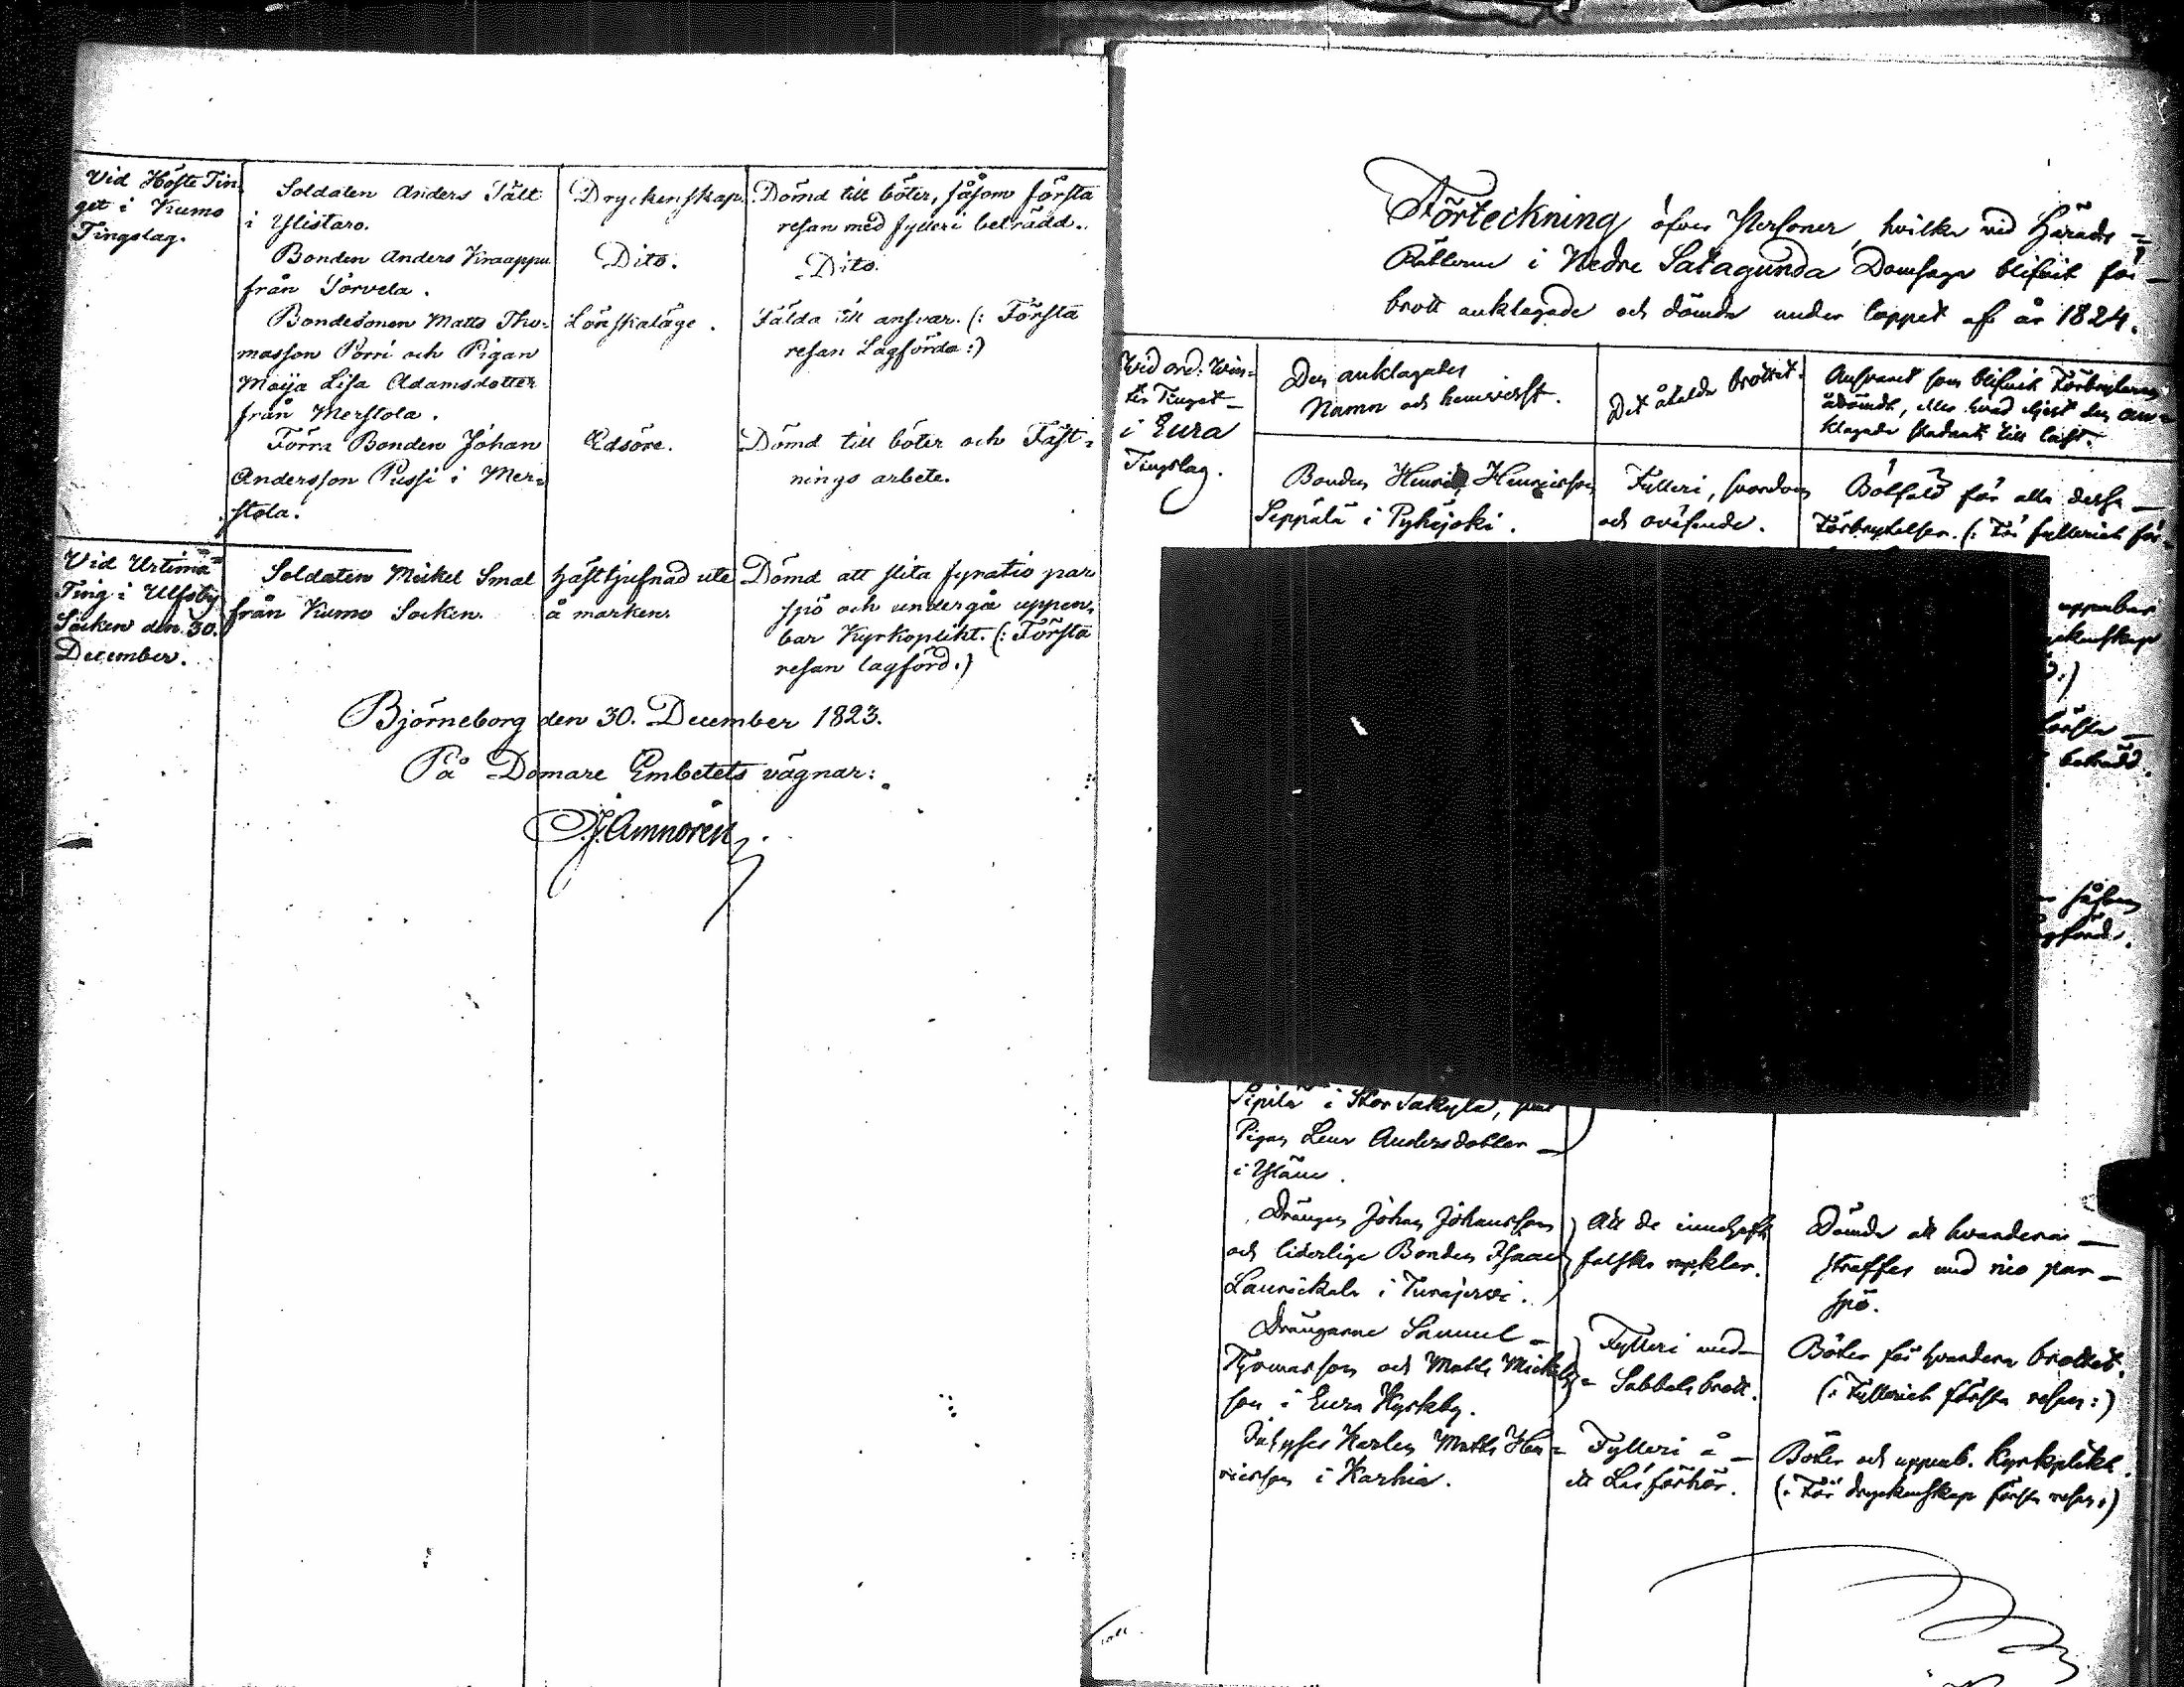 Vid Höste Tin-
get i Kumo
Tingslag.
Soldaten Anders Tält
i Ylistaro.
Dryckenskap.
Dömd till böter, såsom första
resan med fylleri beträdd.
Bonden Anders Knaappu
från Torvela.
Dito.
Dito.
Bondesonen Matts Tho-
masson Porri och Pigan
Maija Lisa Adamsdotter
från Merstola.
Lönskaläge.
Fälda till ansvar. (: Första
resan Lagförda :)
Förra Bonden Johan
Andersson Pussi i Mer-
stola.
Edsöre.
Dömd till böter och Fäst-
nings arbete.
Vid Urtima
Ting i Ulfsby
Socken den 30.
December.
Soldaten Mickel Smal
från Kumo Socken.
Hästtjufnad ute
å marken.
Dömd att slita fyratio par
spö och undergå uppen-
bar Kyrkoplikt. (: Första
resan lagförd.)
Björneborg den 30. December 1823.
På Domare Embetets vägnar:
Förteckning öfver Personer, hvilka vid Härads-
Rätterne i Nedre Satagunda Domsaga blifvit för
brott anklagade och dömde under loppet af år 1824.
Vid ord. Win-
ter Tinget
i Eura
Tingslag.
Den anklagades
Namn och hemvist.
Det åtalde brottet.
Ansvaret som blifvit Förbrytaren
ådömdt, eller hvad eljest den an-
klagade stadnat till last.
Bonden Henric Henricsson
Seppälä i Pyhäjoki.
Fylleri, svordom
och oväsende.
Bötfäld för alla dessa
Förbrytelser. (: För fylleriet för-
uppenbar
ckenskap
första
beträdd.
såsom
gförde.
Sipilä i Stor Säkylä, samt
Pigan Lena Andersdotter
i Yläne.
Drängen Johan Johansson
och liderlige Bonden Isaac
Laurickala i Turajervi.
Att de innehaft
falska nycklar.
Dömde att hvardera
straffas med nio par
spö.
Drängarne Samuel
Thomasson och Matts Mickels-
son i Eura Kyrkby.
Fylleri med
Sabbats brott.
Böter för hvardera brottet.
(: Fylleriet första resan :)
Inhyses Karlen Matts Hen-
ricsson i Karhia.
Fylleri å
ett Läsförhör.
Böter och uppenb. Kyrkoplikt.
(: För dryckenskap första resan.)